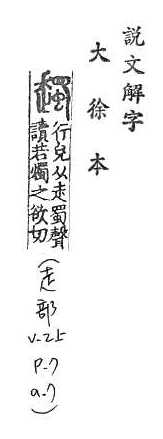 説文解字
大徐本
行皃从走蜀聲
讀若燭之欲切
(走部
V-25
P-7
a-7)